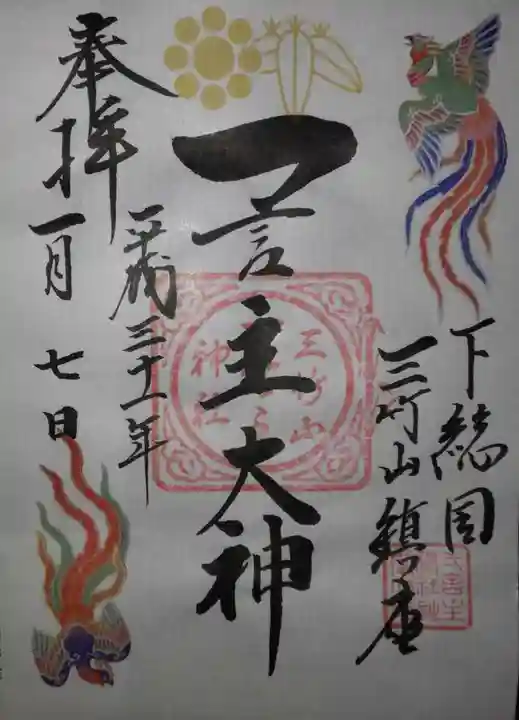 下総国
三竹山鎮座
一言主大神
三竹山
一言主
神社
奉拝
平成三十一年
一月七日